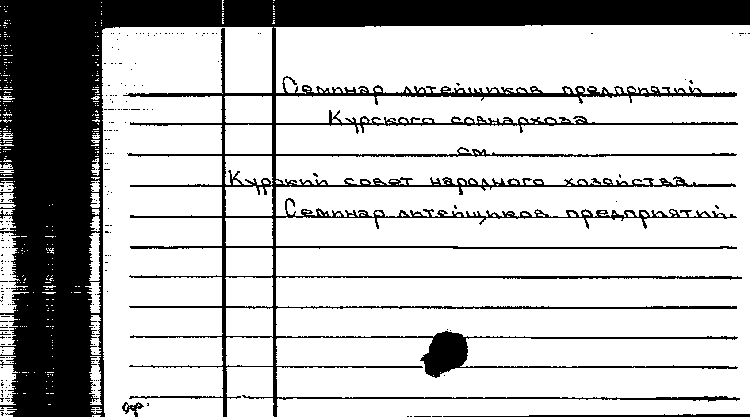 Семинар литейщиков предприятий
Курского совнархоза.
см.
Курский совет народного хозяйства.
Семинар литейщиков предприятий.